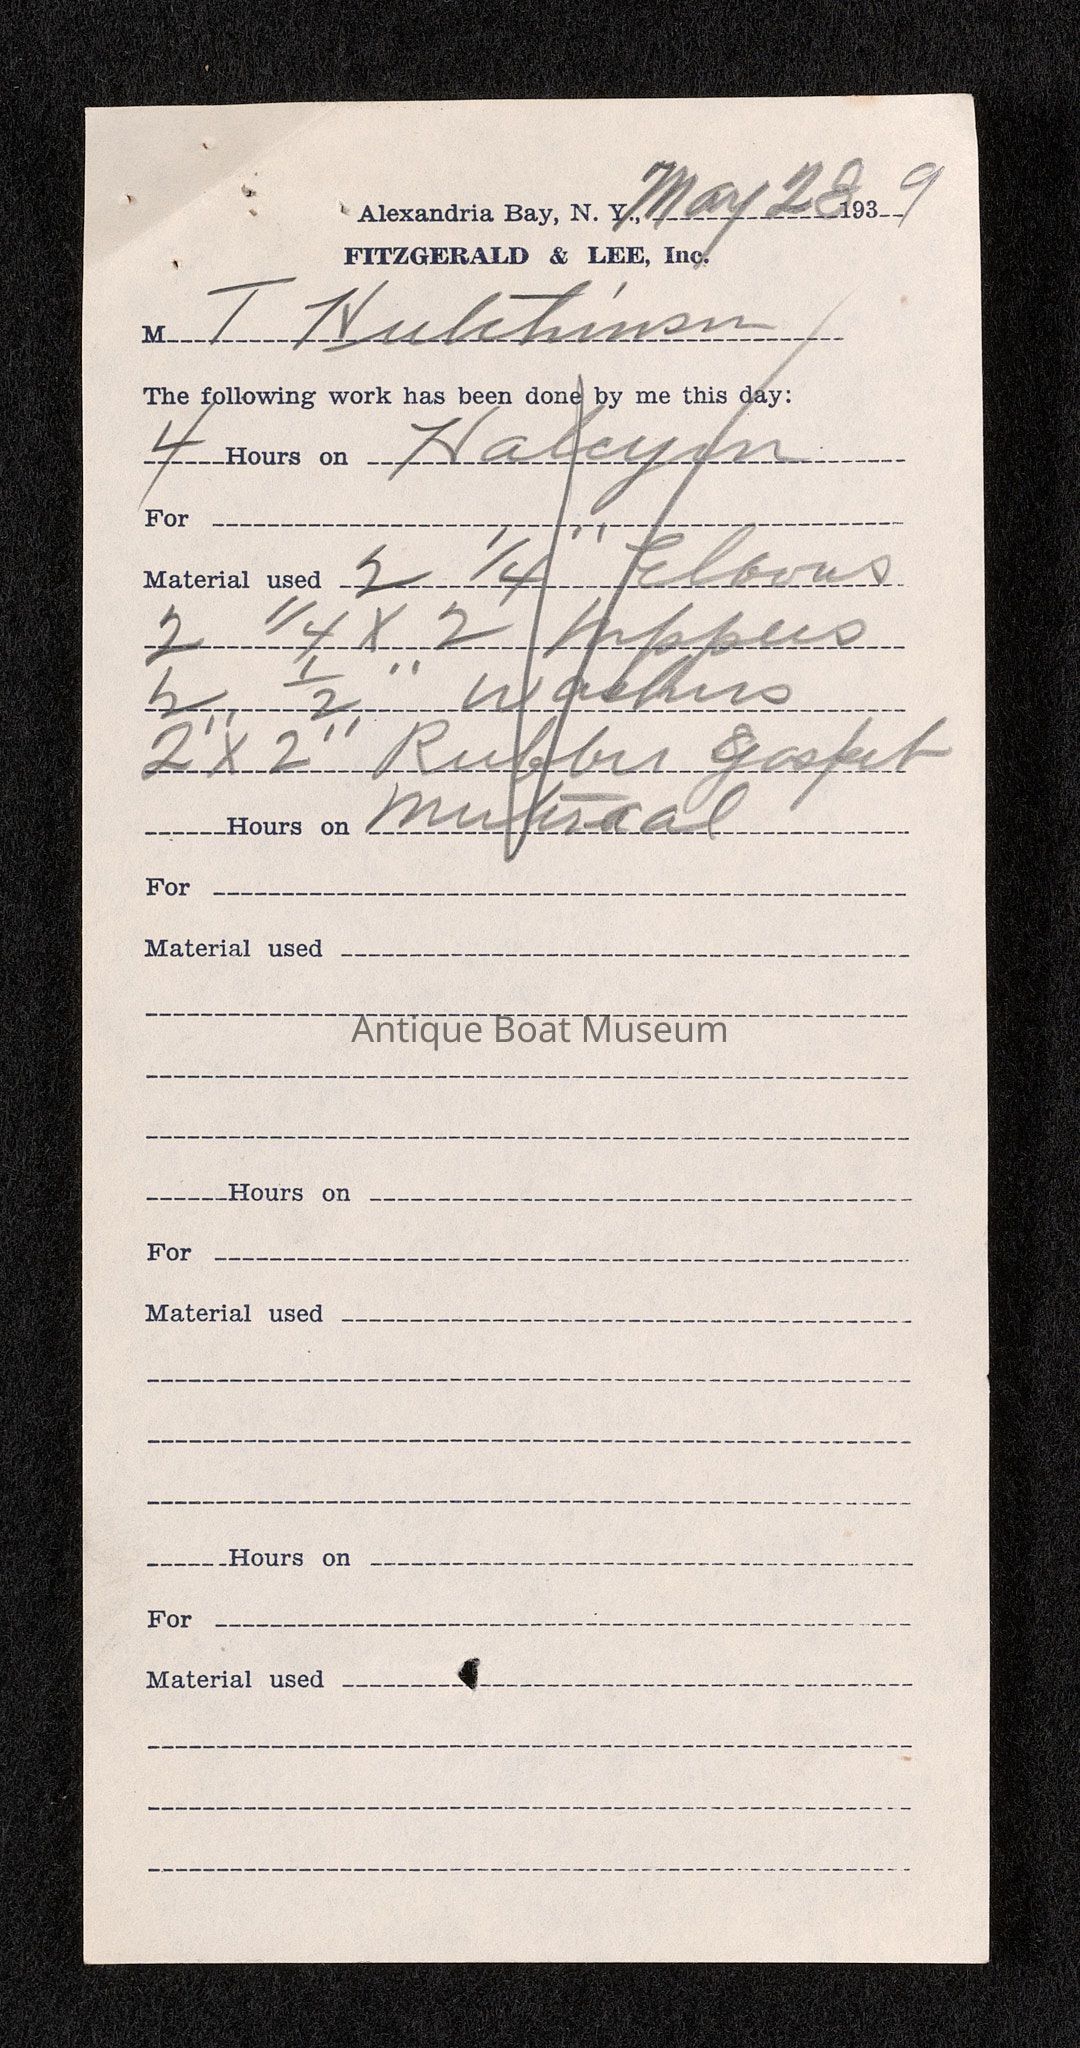 Alexandria Bay, N. Y., May 28 1939
FITZGERALD & LEE, Inc.
M T Hutchinson
The following work has been done by me this day:
4 Hours on Halcyon
For
Material used 2 1/4" Elbows
2 1/4 X 2 nipples
2 1/2" washers
2" X 2" Rubber Gasket
Hours on Mutiraal
For
Material used
Antique Boat Museum
Hours on
For
Material used
Hours on
For
Material used